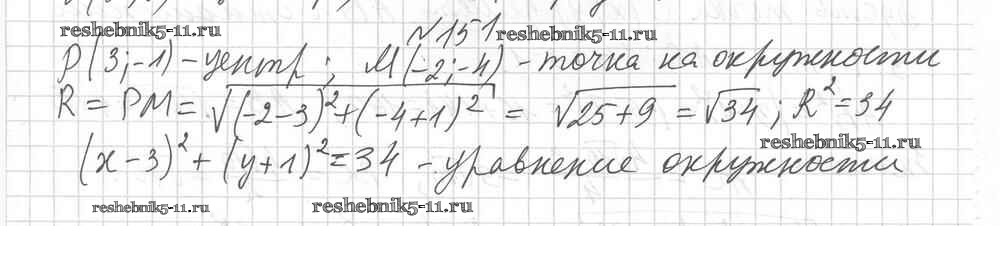 reshebnik5-11.ru №151 reshebnik5-11.ru
P(3;-1) - центр; M(-2;-4) - точка на окружности
R = PM = √(-2-3)²+(-4+1)² = √25+9 = √34; R²=34
reshebnik5-11.ru
(x-3)²+(y+1)²=34 - уравнение окружности
reshebnik5-11.ru reshebnik5-11.ru